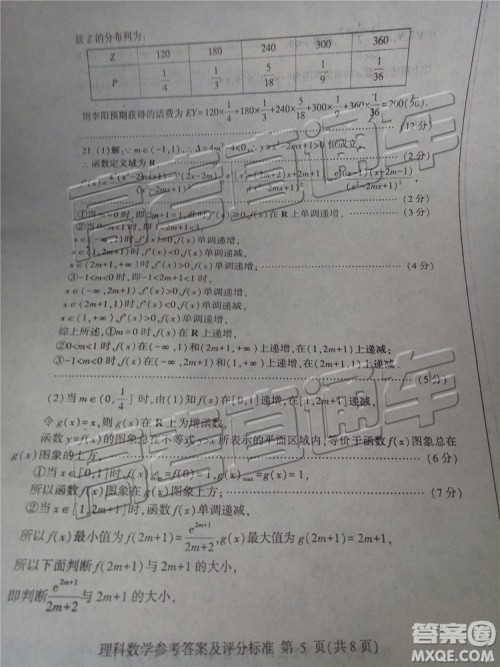 故 Z 的分布列为：
Z 120 180 240 300 360
P 1/4 1/3 5/18 1/9 1/36
则李阳预期获得的话费为 EY=120×1/4+180×1/3+240×5/18+300×1/9+360×1/36=200(元).
(12 分)
21. (1)解：∵ m∈(-1,1),∴Δ=4m²-4<0,∴y=x²-2mx+1>0 恒成立,
∴函数定义域为 R
(2 分)
①当 m=0 时,即2m+1=1,此时f'(x)≥0,f(x)在 R 上单调递增,
(3 分)
②当 0<m<1 时,即 1<2m+1<3,
f'(x)>0,f(x)单调递增,
x∈(1,2m+1)时,f'(x)<0,f(x)单调递减,
x∈(2m+1,+∞)时,f'(x)>0,f(x)单调递增；
(4 分)
③-1<m<0 时,即-1<2m+1<1,
x∈(-∞,2m+1)时,f'(x)>0,f(x)单调递增,
x∈(2m+1,1)时,f'(x)<0,f(x)单调递减,
x∈(1,+∞),f'(x)>0,f(x)单调递增.
综上所述,①m=0 时,f(x)在 R 上递增,
②0<m<1 时,f(x)在(-∞,1)和(2m+1,+∞)上递增,在(1,2m+1)上递减；
③-1<m<0 时,f(x)在(-∞,2m+1)和(1,+∞)上递增,在(2m+1,1)上递减.
(5 分)
(2)当 m∈(0,1/4] 时,由(1)知f(x)在[0,1]递增,在[1,2m+1]递减,
令 g(x)=x,则 g(x)在 R 上为增函数,
函数 y=f(x)的图象总在不等式 y>x 所表示的平面区域内,等价于函数 f(x)图象总在
g(x)图象的上方；
(6 分)
①当 x∈[0,1]时,f(x)min=f(0)=1,g(x)max=g(1)=1,
所以函数 f(x)图象在 g(x)图象上方；
(7 分)
②当 x∈[1,2m+1]时,函数 f(x)单调递减,
所以 f(x)最小值为 f(2m+1)=e^(2m+1)/(2m+2),g(x)最大值为 g(2m+1)=2m+1,
所以下面判断 f(2m+1)与 2m+1 的大小,
即判断 e^(2m+1)/(2m+2) 与 2m+1 的大小,
理科数学参考答案及评分标准 第 5 页(共 8 页)
高考直通车
高考直通车
答案圈
MXQE.COM